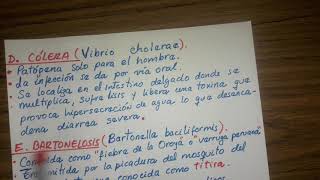 D. CÓLERA (Vibrio cholerae).
• Patógena solo para el hombre.
• La infección se da por vía oral.
• Se localiza en el intestino delgado donde se
multiplica, sufre lisis y libera una toxina que
provoca hipersecreción de agua lo que desenca-
dena diarrea severa.
E. BARTONELOSIS (Bartonella baciliformis).
• Conocida como "fiebre de la Oroya" o "verruga peruana"
Transmitida por la picadura del mosquito del
conocida como titira.